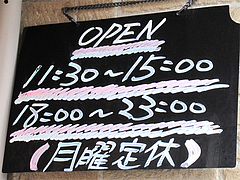 OPEN
11:30～15:00
18:00～23:00
(月曜定休)